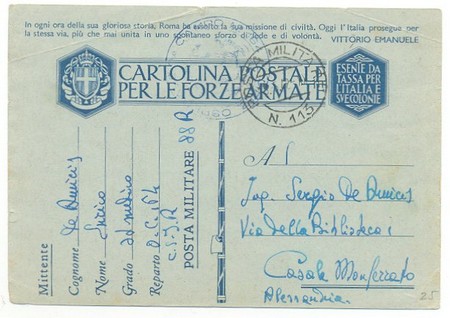 In ogni ora della sua gloriosa storia, Roma ha assolto la sua missione di civiltà. Oggi l'Italia prosegue per
la stessa via, più che mai unita in uno spontaneo sforzo di fede e di volontà.
VITTORIO EMANUELE
CARTOLINA POSTALE
PER LE FORZE ARMATE
ESENTE DA
TASSA PER
L'ITALIA E
SVE COLONIE
POSTA MILITARE
N. 113
Mittente
Cognome De Amicis
Nome Enrico
Grado
Reparto
POSTA MILITARE 88 R
Al
Ing. Sergio De Amicis
Via della Biblioteca 1
Casale Monferrato
Alessandria
25